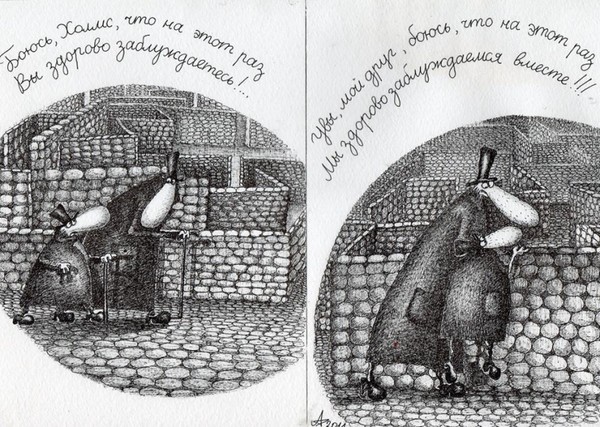 Боюсь, Холмс, что на этот раз
Вы здорово заблуждаетесь!...
Увы, мой друг, боюсь, что на этот раз
Мы здорово заблуждаемся вместе!!!